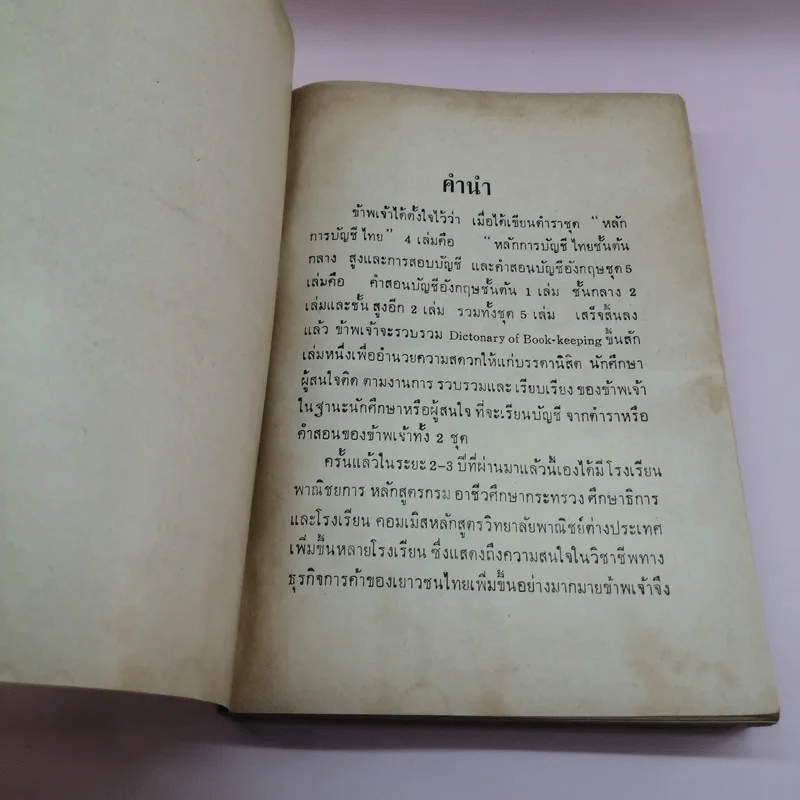 คำนำ
ข้าพเจ้าได้ตั้งใจไว้ว่า เมื่อได้เขียนตำราชุด “หลัก
การบัญชีไทย” 4 เล่มคือ “หลักการบัญชีไทยชั้นต้น
กลาง สูงและการสอบบัญชี และคำสอนบัญชีอังกฤษชุด 5
เล่มคือ คำสอนบัญชีอังกฤษชั้นต้น 1 เล่ม ชั้นกลาง 2
เล่มและชั้น สูงอีก 2 เล่ม รวมทั้งชุด 5 เล่ม เสร็จสิ้นลง
แล้ว ข้าพเจ้าจะรวบรวม Dictonary of Book-keeping ขึ้นสัก
เล่มหนึ่งเพื่ออำนวยความสดวกให้แก่บรรดานิสิต นักศึกษา
ผู้สนใจติด ตามงานการ รวบรวมและ เรียบเรียง ของข้าพเจ้า
ในฐานะนักศึกษาหรือผู้สนใจ ที่จะเรียนบัญชี จากตำราหรือ
คำสอนของข้าพเจ้าทั้ง 2 ชุด
ครั้นแล้วในระยะ 2-3 ปีที่ผ่านมาแล้วนี้เองได้มี โรงเรียน
พาณิชยการ หลักสูตรกรม อาชีวศึกษากระทรวง ศึกษาธิการ
และโรงเรียน คอมเมิสหลักสูตรวิทยาลัยพาณิชย์ต่างประเทศ
เพิ่มขึ้นหลายโรงเรียน ซึ่งแสดงถึงความสนใจในวิชาชีพทาง
ธุรกิจการค้าของเยาวชนไทยเพิ่มขึ้นอย่างมากมายข้าพเจ้าจึง